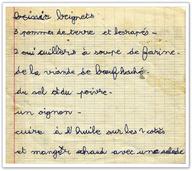 beignets
3 pommes de terre et les rapés -
3 ou cuillers à soupe de farine -
de la viande de bœuf haché -
du sel et du poivre -
un oignon -
cuire à l'huile sur les 2 cotés
et manger chaud avec une salade